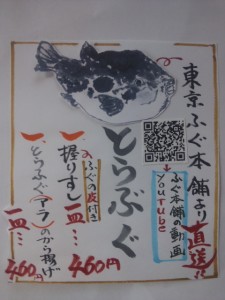 東京ふぐ本舗より直送!!
ふぐ本舗の動画
YOUTUBE
とらふぐ
ふぐの皮付き
握りずし一皿…460円
とらふぐ(アラ)のから揚げ
一皿…460円